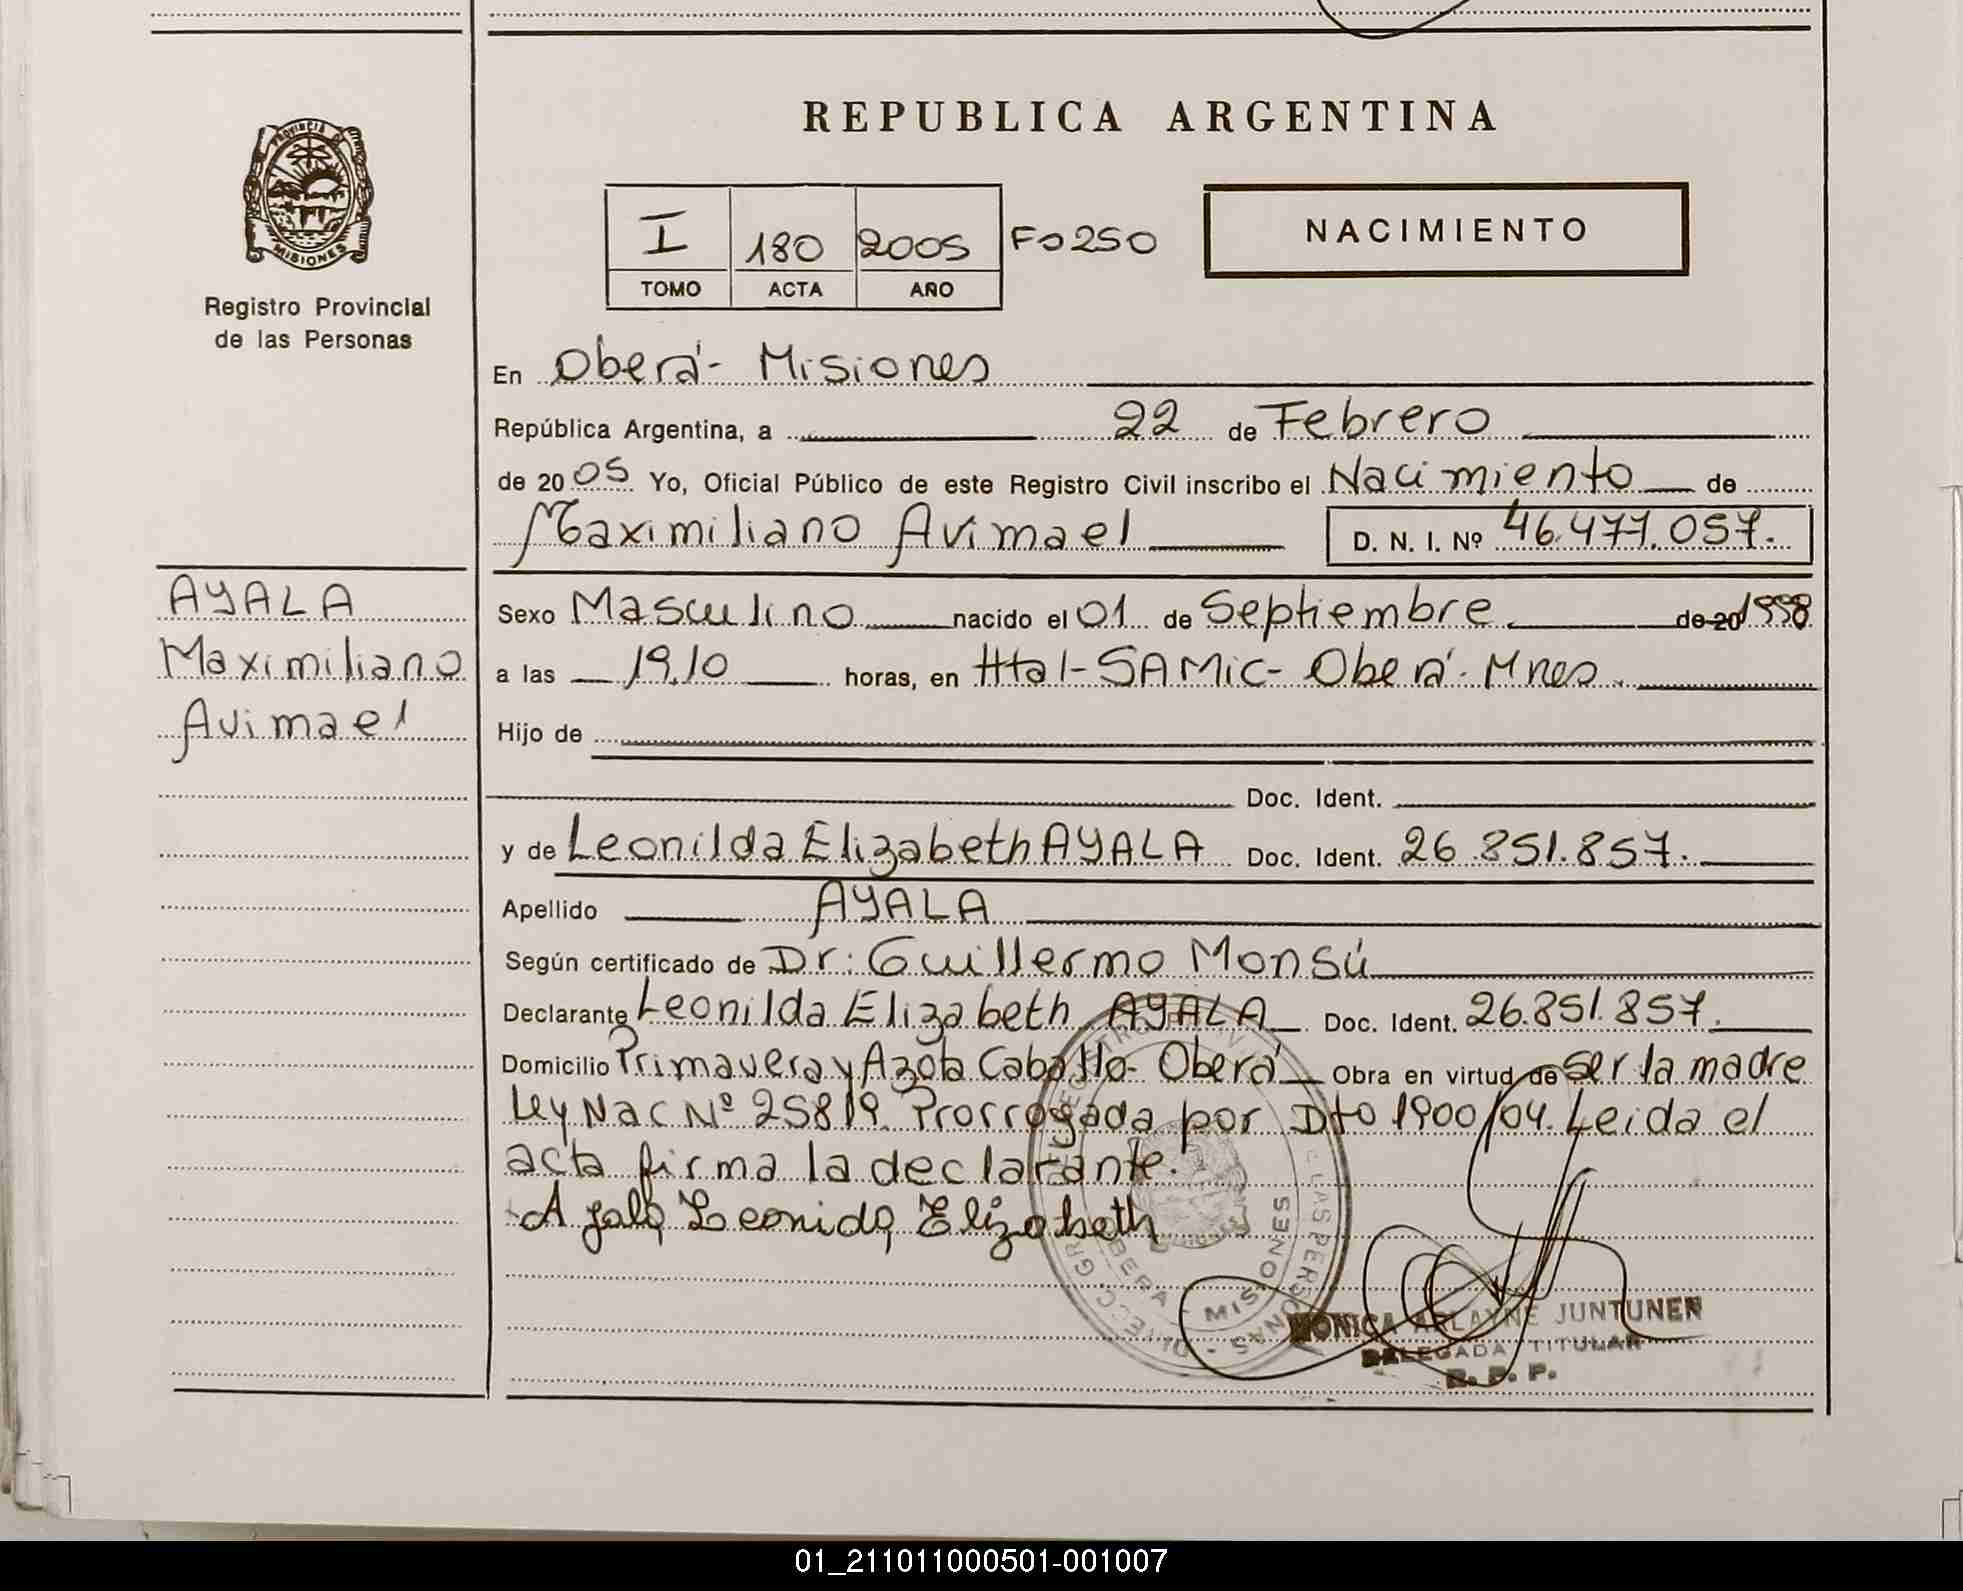 REPUBLICA ARGENTINA
PROVINCIA DE MISIONES
Registro Provincial
de las Personas
I 180 2005 Fo 250
TOMO ACTA AÑO
NACIMIENTO
En Oberá - Misiones
República Argentina, a 22 de Febrero
de 2005 Yo, Oficial Público de este Registro Civil inscribo el Nacimiento de
Maximiliano Avimael D. N. I. Nº 46.477.057.
AYALA
Maximiliano
Avimael
Sexo Masculino nacido el 01 de Septiembre de 20 1998
a las 19,10 horas, en Htal-SAMIC- Oberá - Mnes.
Hijo de
Doc. Ident.
y de Leonilda Elizabeth AYALA Doc. Ident. 26.851.857.
Apellido AYALA
Según certificado de Dr: Guillermo Monsú
Declarante Leonilda Elizabeth AYALA Doc. Ident. 26.851.857.
Domicilio Primavera y Azota Caballo - Oberá Obra en virtud de ser la madre
Ley Nac Nº 25819. Prorrogada por Dto 1900/04. Leida el
acta firma la declarante.
Ayala Leonida Elizabeth
OBERA - MISIONES
MONICA ARLAYNE JUNTUNEN
DELEGADA TITULAR
R. P. P.
01_211011000501-001007